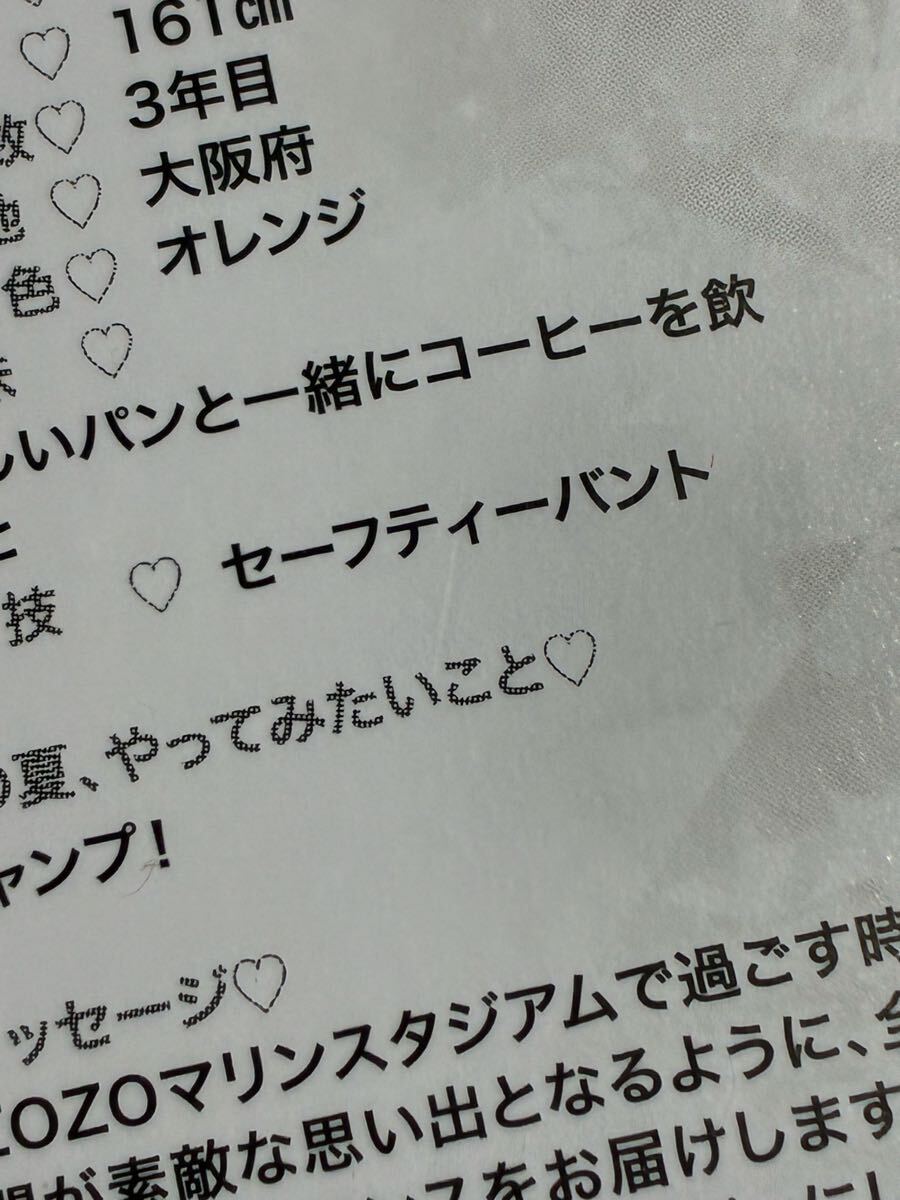 ♡ 161㎝
数♡ 3年目
地 ♡ 大阪府
色♡ オレンジ
♡
しいパンと一緒にコーヒーを飲
と
技 ♡ セーフティーバント
の夏、やってみたいこと♡
ャンプ!
ッセージ♡
ZOZOマリンスタジアムで過ごす時
間が素敵な思い出となるように、全
ンスをお届けします